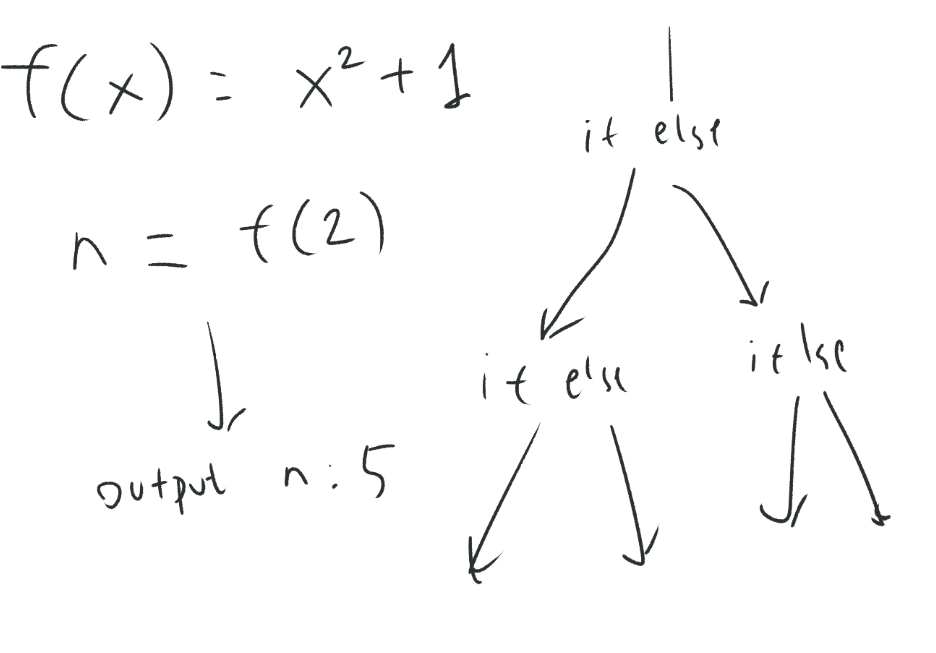 f(x) = x² + 1
n = f(2)
output n: 5
if else
if else
if lse